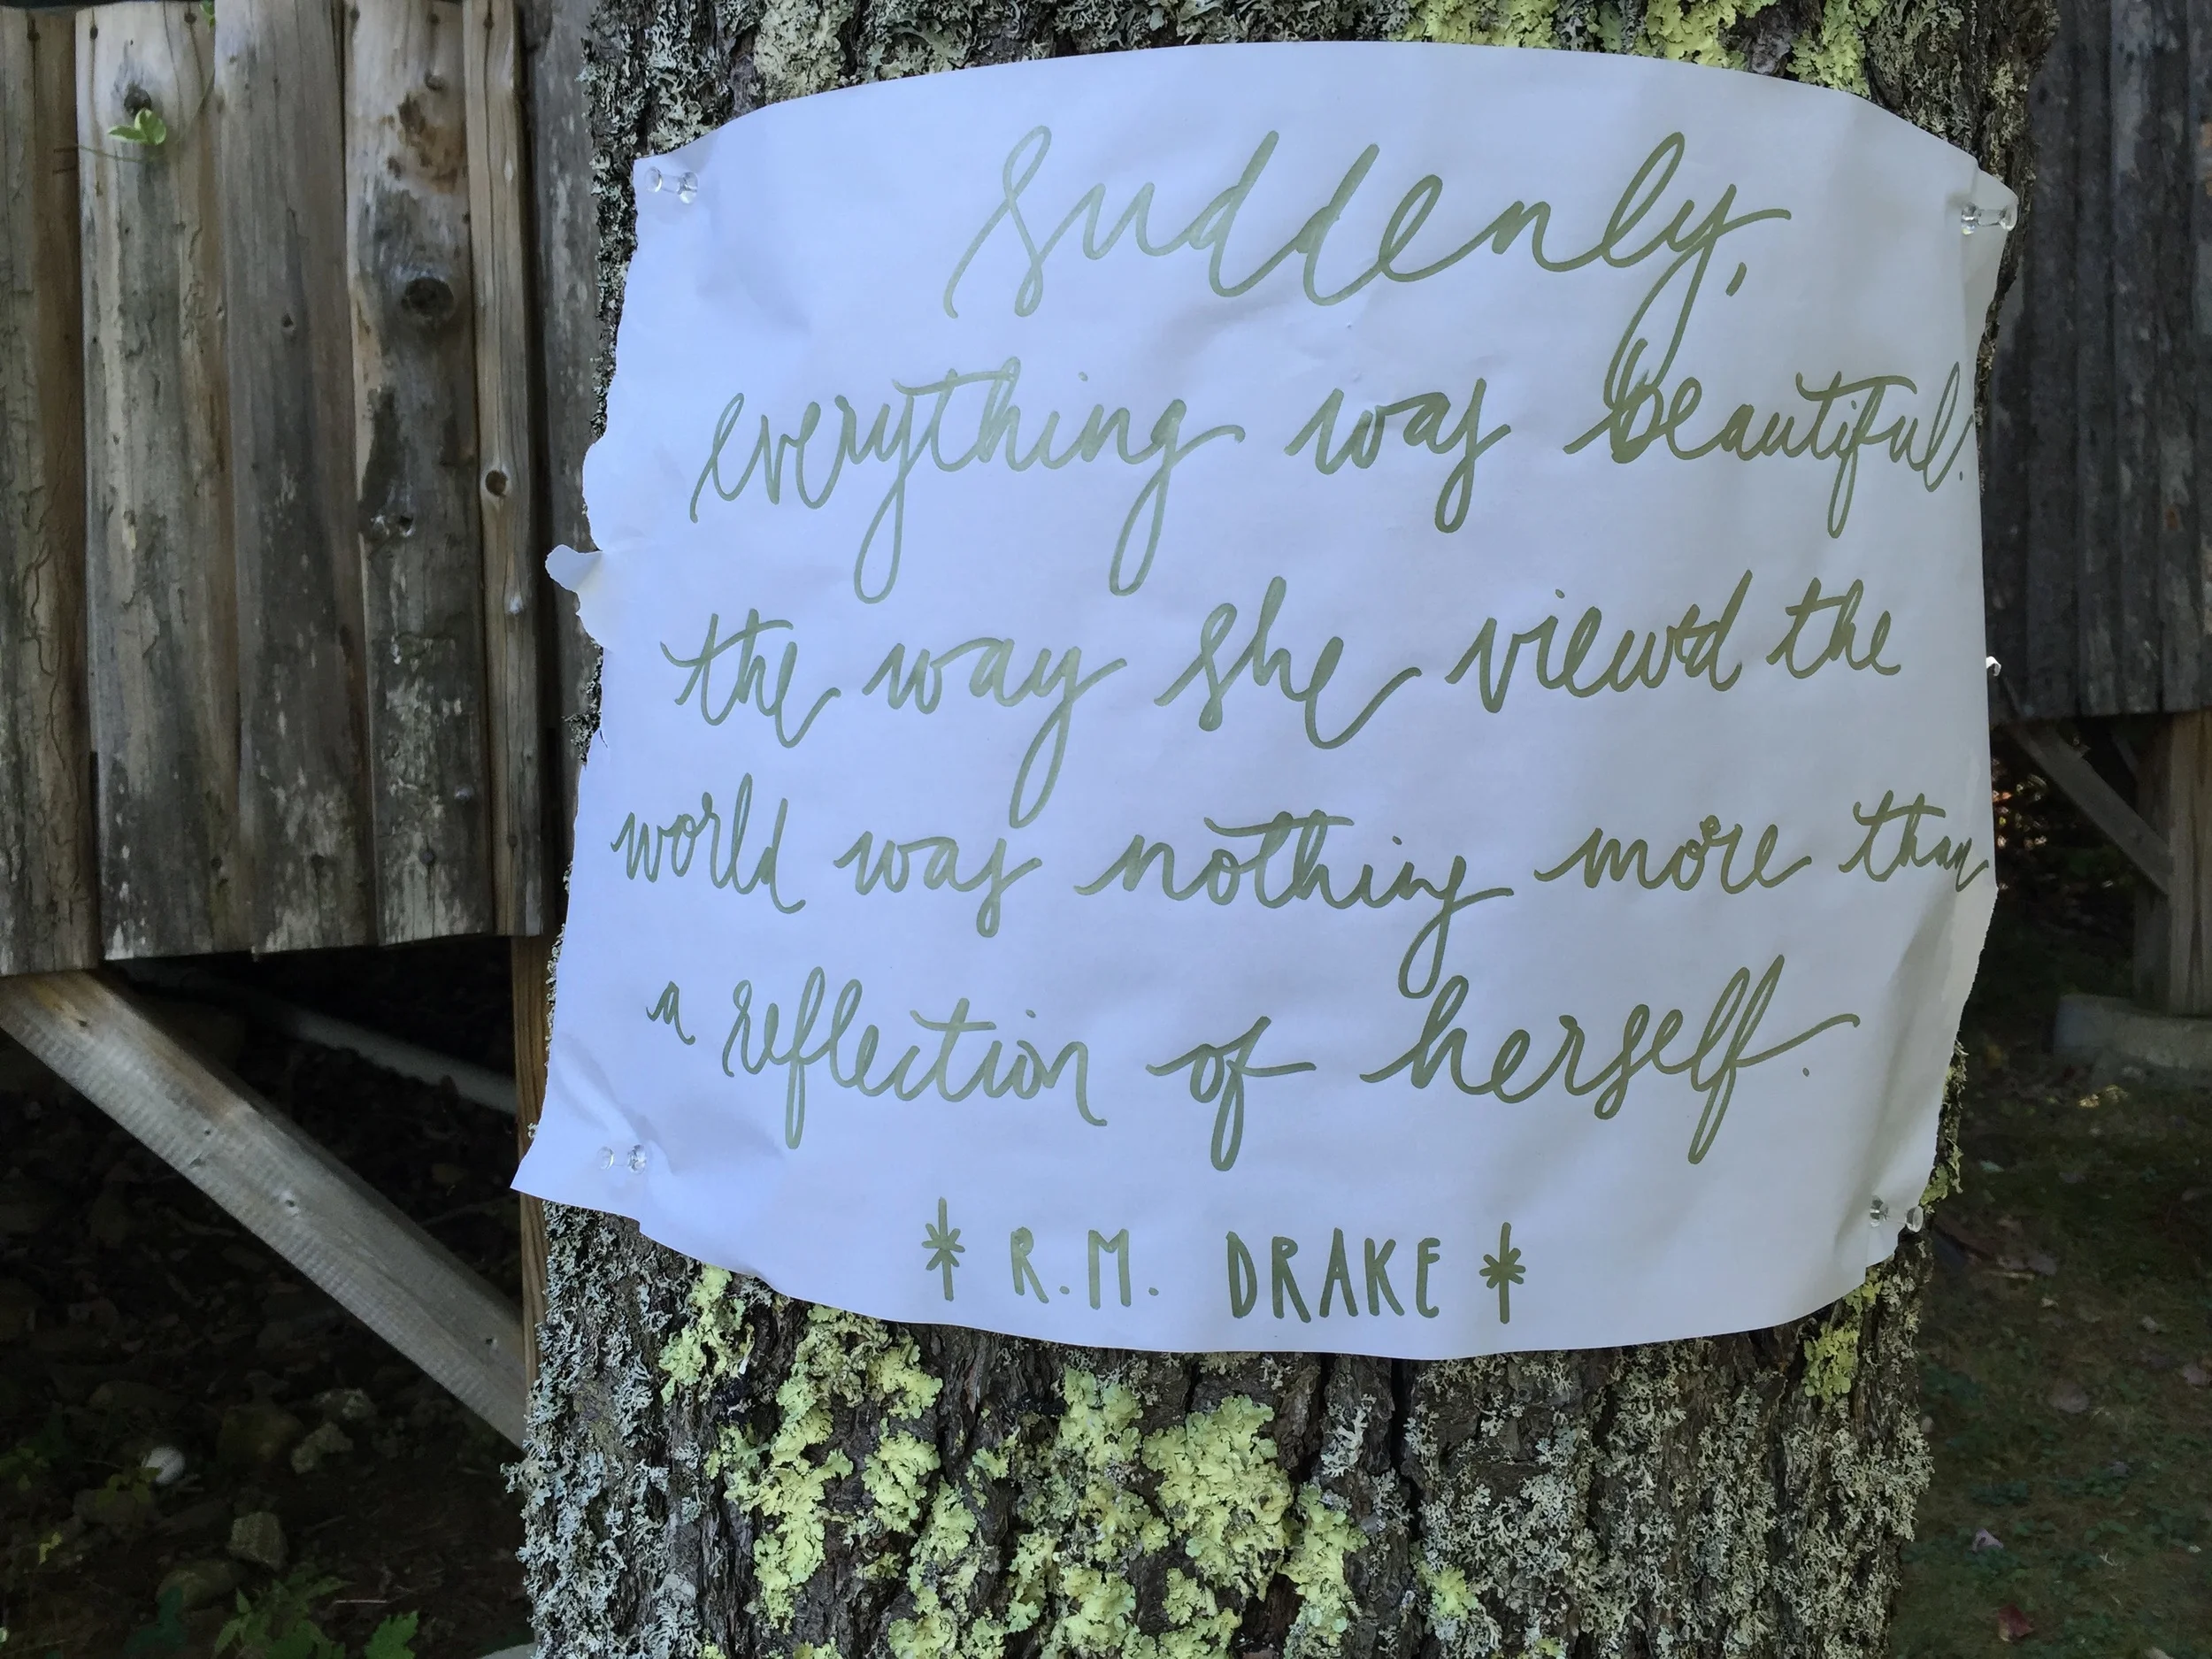 suddenly,
everything was beautiful.
the way she viewed the
world was nothing more than
a reflection of herself.
* R.M. DRAKE *